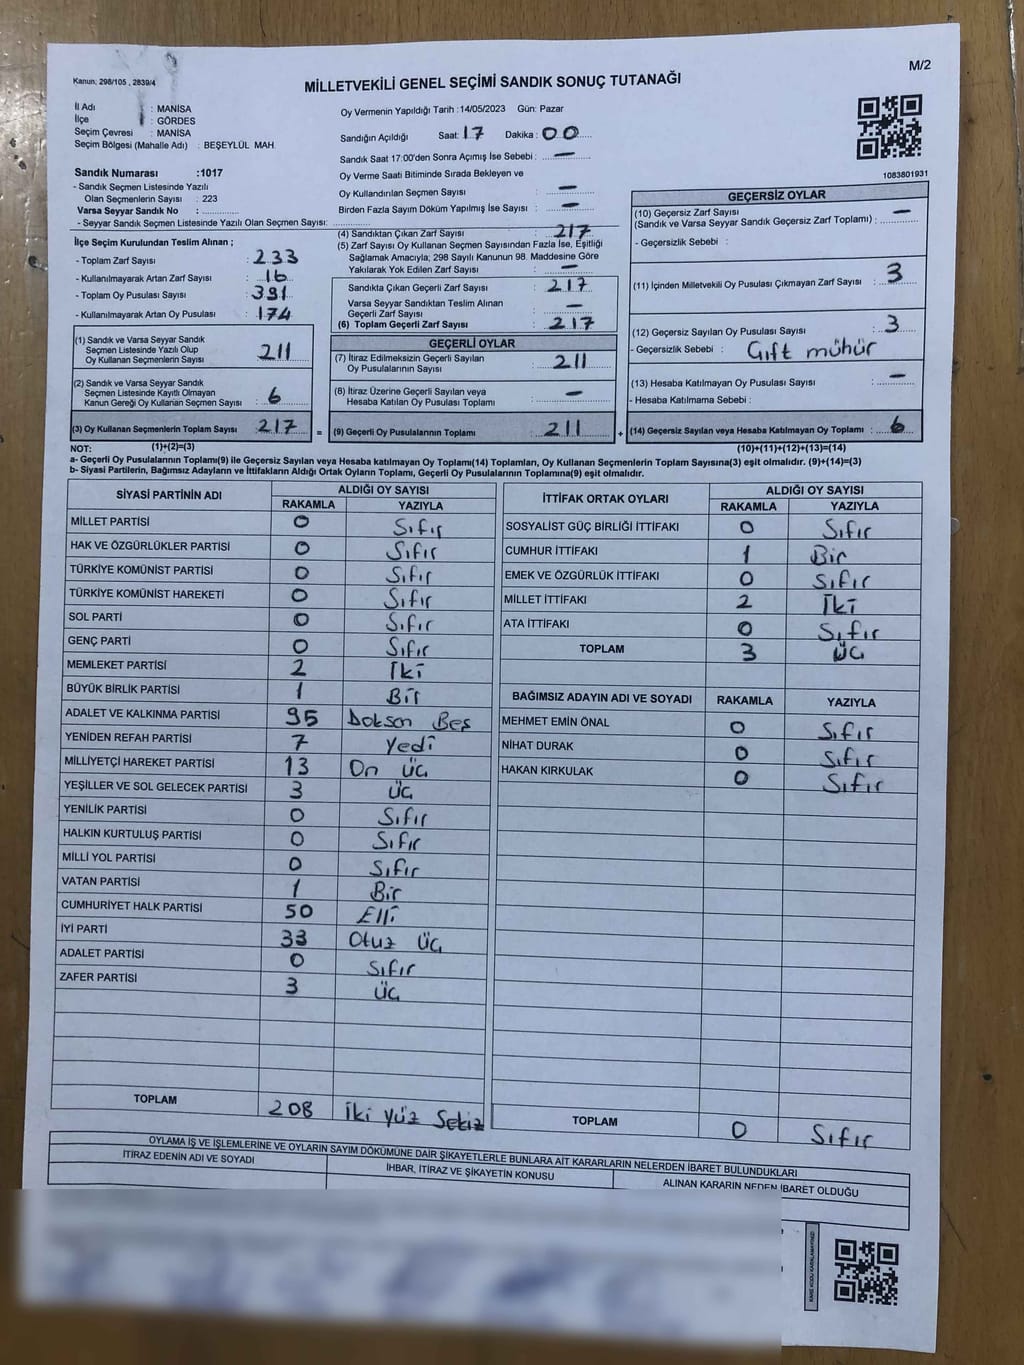 Kanun; 298/105 , 2839/4
MİLLETVEKİLİ GENEL SEÇİMİ SANDIK SONUÇ TUTANAĞI
M/2
İl Adı : MANİSA
İlçe : GÖRDES
Seçim Çevresi : MANİSA
Seçim Bölgesi (Mahalle Adı) : BEŞEYLÜL MAH.
Oy Vermenin Yapıldığı Tarih :14/05/2023 Gün: Pazar
Sandığın Açıldığı Saat: 17 Dakika : 00
Sandık Saat 17:00'den Sonra Açımış İse Sebebi : —
Oy Verme Saati Bitiminde Sırada Bekleyen ve
Oy Kullandırılan Seçmen Sayısı : —
Birden Fazla Sayım Döküm Yapılmış İse Sayısı : —
1083801931
Sandık Numarası :1017
- Sandık Seçmen Listesinde Yazılı
Olan Seçmenlerin Sayısı : 223
Varsa Seyyar Sandık No :
- Seyyar Sandık Seçmen Listesinde Yazılı Olan Seçmen Sayısı:
İlçe Seçim Kurulundan Teslim Alınan ;
- Toplam Zarf Sayısı : 233
- Kullanılmayarak Artan Zarf Sayısı : 16
- Toplam Oy Pusulası Sayısı : 391
- Kullanılmayarak Artan Oy Pusulası : 174
(1) Sandık ve Varsa Seyyar Sandık
Seçmen Listesinde Yazılı Olup
Oy Kullanan Seçmenlerin Sayısı : 211
(2) Sandık ve Varsa Seyyar Sandık
Seçmen Listesinde Kayıtlı Olmayan
Kanun Gereği Oy Kullanan Seçmen Sayısı : 6
(3) Oy Kullanan Seçmenlerin Toplam Sayısı : 217 =
(4) Sandıktan Çıkan Zarf Sayısı : 217
(5) Zarf Sayısı Oy Kullanan Seçmen Sayısından Fazla İse, Eşitliği
Sağlamak Amacıyla; 298 Sayılı Kanunun 98. Maddesine Göre
Yakılarak Yok Edilen Zarf Sayısı : —
Sandıkta Çıkan Geçerli Zarf Sayısı : 217
Varsa Seyyar Sandıktan Teslim Alınan
Geçerli Zarf Sayısı : —
(6) Toplam Geçerli Zarf Sayısı : 217
GEÇERLİ OYLAR
(7) İtiraz Edilmeksizin Geçerli Sayılan
Oy Pusulalarının Sayısı : 211
(8) İtiraz Üzerine Geçerli Sayılan veya
Hesaba Katılan Oy Pusulası Toplamı : —
(9) Geçerli Oy Pusulalarının Toplamı : 211 +
GEÇERSİZ OYLAR
(10) Geçersiz Zarf Sayısı
(Sandık ve Varsa Seyyar Sandık Geçersiz Zarf Toplamı) : —
- Geçersizlik Sebebi :
(11) İçinden Milletvekili Oy Pusulası Çıkmayan Zarf Sayısı : 3
(12) Geçersiz Sayılan Oy Pusulası Sayısı : 3
- Geçersizlik Sebebi : Çift mühür
(13) Hesaba Katılmayan Oy Pusulası Sayısı : —
- Hesaba Katılmama Sebebi :
(14) Geçersiz Sayılan veya Hesaba Katılmayan Oy Toplamı : 6
NOT: (1)+(2)=(3) (10)+(11)+(12)+(13)=(14)
a- Geçerli Oy Pusulalarının Toplamı(9) ile Geçersiz Sayılan veya Hesaba katılmayan Oy Toplamı(14) Toplamları, Oy Kullanan Seçmenlerin Toplam Sayısına(3) eşit olmalıdır. (9)+(14)=(3)
b- Siyasi Partilerin, Bağımsız Adayların ve İttifakların Aldığı Ortak Oyların Toplamı, Geçerli Oy Pusulalarının Toplamına(9) eşit olmalıdır.
SİYASİ PARTİNİN ADI ALDIĞI OY SAYISI
RAKAMLA YAZIYLA
MİLLET PARTİSİ 0 Sıfır
HAK VE ÖZGÜRLÜKLER PARTİSİ 0 Sıfır
TÜRKİYE KOMÜNİST PARTİSİ 0 Sıfır
TÜRKİYE KOMÜNİST HAREKETİ 0 Sıfır
SOL PARTİ 0 Sıfır
GENÇ PARTİ 0 Sıfır
MEMLEKET PARTİSİ 2 İki
BÜYÜK BİRLİK PARTİSİ 1 Bir
ADALET VE KALKINMA PARTİSİ 95 Doksan Beş
YENİDEN REFAH PARTİSİ 7 Yedi
MİLLİYETÇİ HAREKET PARTİSİ 13 On Üç
YEŞİLLER VE SOL GELECEK PARTİSİ 3 Üç
YENİLİK PARTİSİ 0 Sıfır
HALKIN KURTULUŞ PARTİSİ 0 Sıfır
MİLLİ YOL PARTİSİ 0 Sıfır
VATAN PARTİSİ 1 Bir
CUMHURİYET HALK PARTİSİ 50 Elli
İYİ PARTİ 33 Otuz Üç
ADALET PARTİSİ 0 Sıfır
ZAFER PARTİSİ 3 Üç
TOPLAM 208 İki Yüz Sekiz
İTTİFAK ORTAK OYLARI ALDIĞI OY SAYISI
RAKAMLA YAZIYLA
SOSYALİST GÜÇ BİRLİĞİ İTTİFAKI 0 Sıfır
CUMHUR İTTİFAKI 1 Bir
EMEK VE ÖZGÜRLÜK İTTİFAKI 0 Sıfır
MİLLET İTTİFAKI 2 İki
ATA İTTİFAKI 0 Sıfır
TOPLAM 3 Üç
BAĞIMSIZ ADAYIN ADI VE SOYADI RAKAMLA YAZIYLA
MEHMET EMİN ÖNAL 0 Sıfır
NİHAT DURAK 0 Sıfır
HAKAN KIRKULAK 0 Sıfır
TOPLAM 0 Sıfır
OYLAMA İŞ VE İŞLEMLERİNE VE OYLARIN SAYIM DÖKÜMÜNE DAİR ŞİKAYETLERLE BUNLARA AİT KARARLARIN NELERDEN İBARET BULUNDUKLARI
İTİRAZ EDENİN ADI VE SOYADI İHBAR, İTİRAZ VE ŞİKAYETİN KONUSU ALINAN KARARIN NEDEN İBARET OLDUĞU